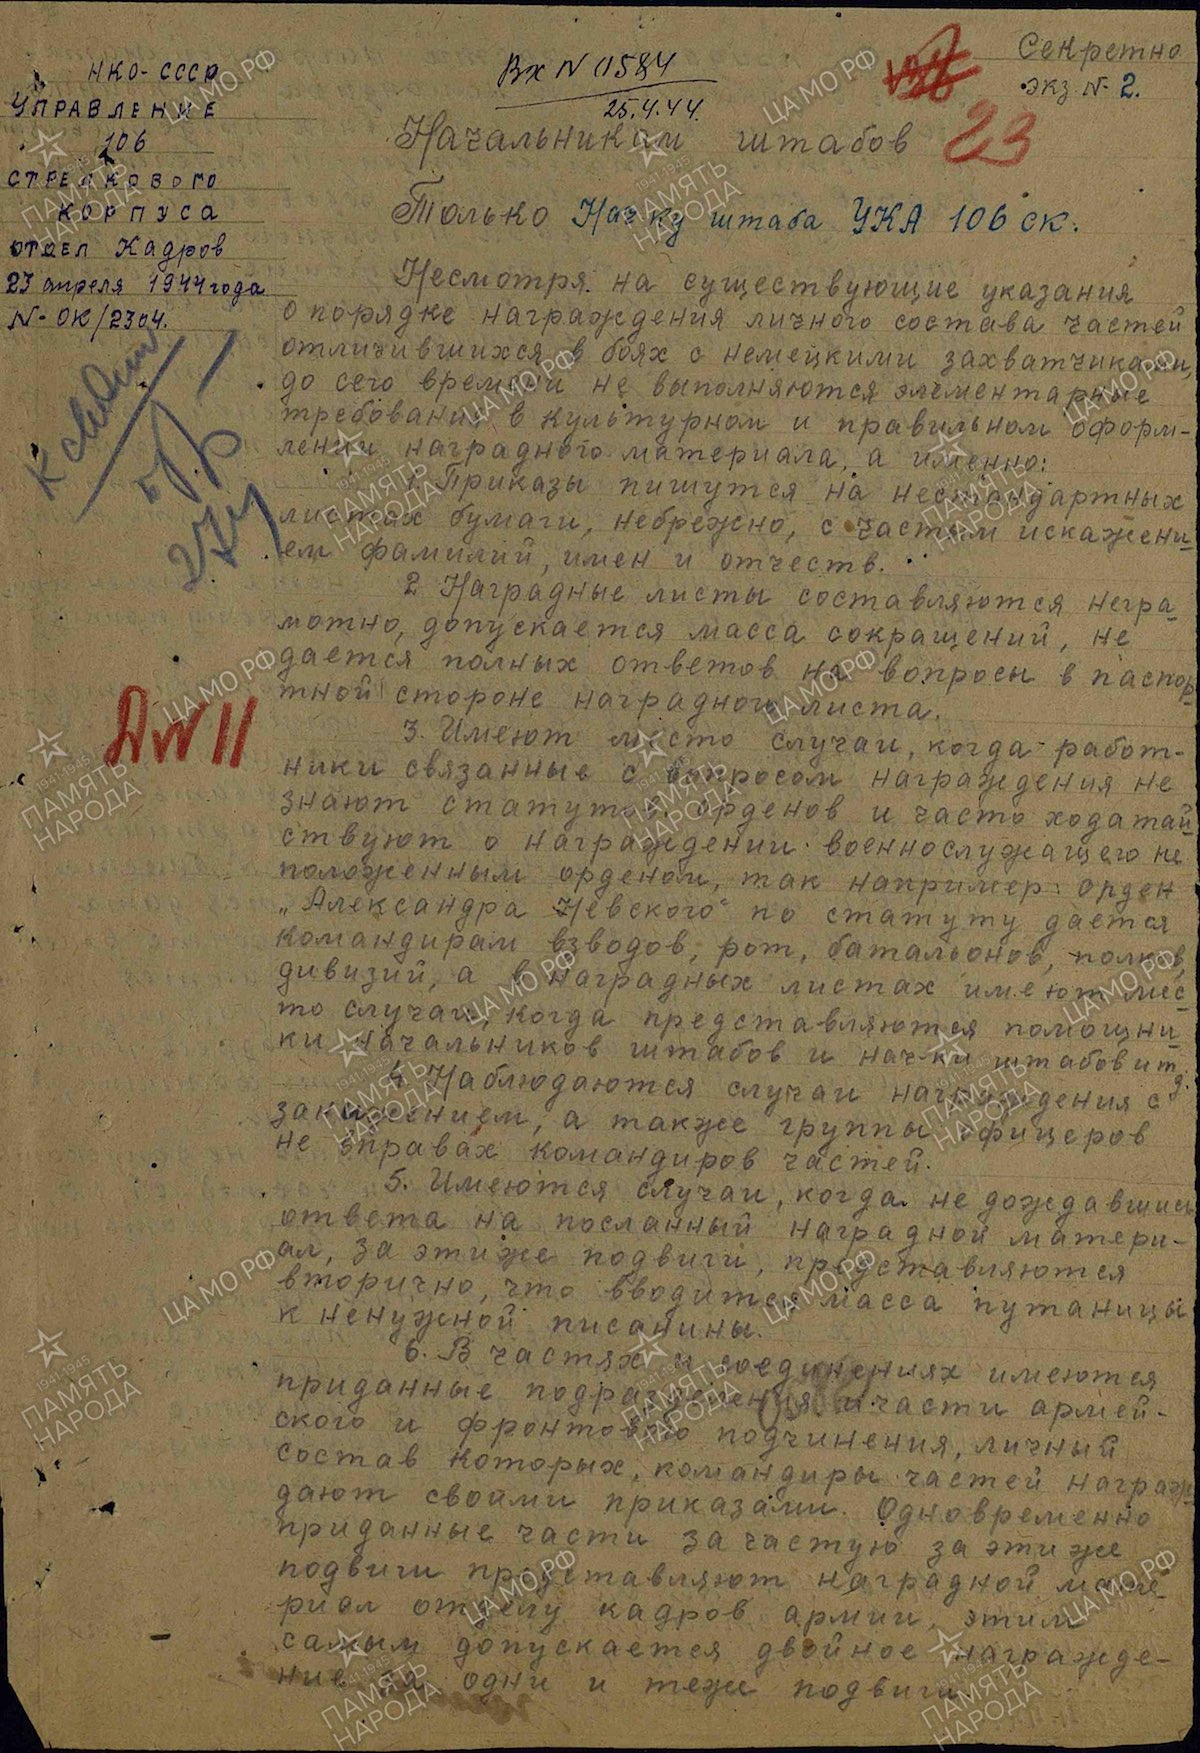 Секретно
экз № 2.
Вх N 01584
25.4.44.
23
НКО-СССР
УПРАВЛЕНИЕ
106
СТРЕЛКОВОГО
КОРПУСА
ОТДЕЛ Кадров
23 апреля 1944 года
N- ОК/2304.
Начальникам штабов
Только Нач-ку штаба УКА 106 ск.
Несмотря на существующие указания
о порядке награждения личного состава частей
отличившихся в боях с немецкими захватчиками,
до сего времени не выполняются элементарные
требования в культурном и правильном оформ-
лении наградного материала, а именно:
1. Приказы пишутся на нестандартных
листах бумаги, небрежно, с частым искажени-
ем фамилий, имен и отчеств.
2 Наградные листы составляются негра-
мотно, допускается масса сокращений, не
дается полных ответов на вопросы в паспор-
тной стороне наградного листа.
3. Имеют место случаи, когда работ-
ники связанные с вопросом награждения не
знают статутов орденов и часто ходатай-
ствуют о награждении военнослужащего не
положенным орденом, так например: орден
„Александра Невского" по статуту дается
командирам взводов, рот, батальонов, полков,
дивизий, а в наградных листах имеют мес-
то случаи, когда представляются помощни-
ки начальников штабов и нач-ки штабов и т.д.
4 Наблюдаются случаи награждения с
занижением, а также группы офицеров
не вправах командиров частей.
5. Имеются случаи, когда не дождавшись
ответа на посланный наградной матери-
ал, за эти же подвиги, представляются
вторично, что вводится масса путаницы
к ненужной писанины.
6. В частях и соединениях имеются
приданные подразделения и части армей-
ского и фронтового подчинения, личный
состав которых, командиры частей награж-
дают своими приказами. Одновременно
приданные части за частую за эти же
подвиги представляют наградной мате-
риал отделу кадров армии, этим
самым допускается двойное награжде-
ние за одни и теже подвиги.
Д №11
27/4
ПАМЯТЬ НАРОДА
1941-1945
ЦА МО РФ